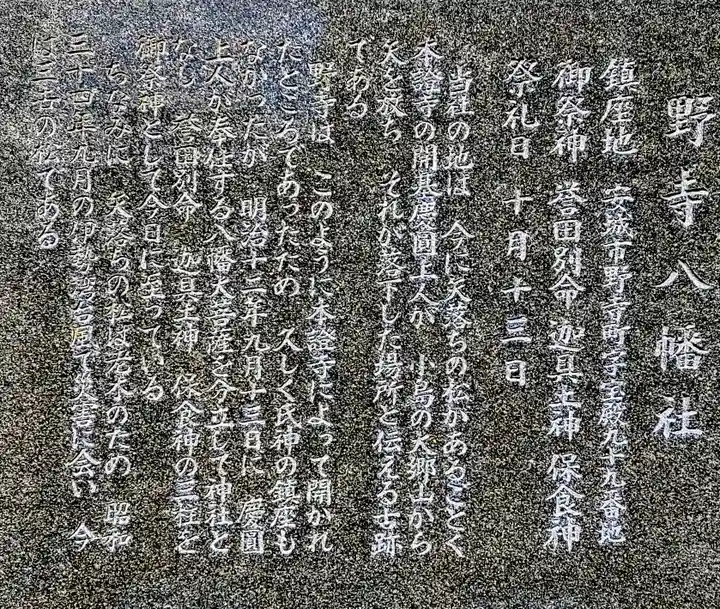 野寺八幡社
鎮座地 安城市野寺町字宝殿九十九番地
御祭神 誉田別命 迦具土神 保食神
祭礼日 十月十三日
当社の地は 今に矢落ちの松があるごとく
本證寺の開基慶圓上人が 小島の大郷山から
矢を放ち それが落下した場所と伝える古跡
である
野寺は このように本證寺によって開かれ
たところであったため 久しく氏神の鎮座も
なかったが 明治十二年九月十三日に 慶圓
上人が奉仕する八幡大菩薩を分立して神社と
なし 誉田別命 迦具土神 保食神の三柱を
御祭神として今日に至っている
ちなみに 矢落ちの松は老木のため 昭和
三十四年九月の伊勢湾台風で災害に会い 今
は三古の松である